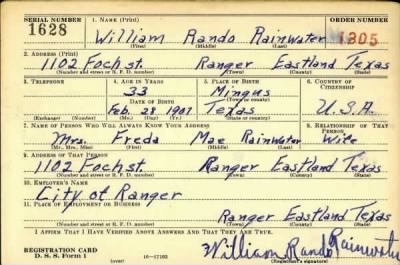 SERIAL NUMBER 1. NAME (Print) ORDER NUMBER
1628 William Rando Rainwater 1305
(First) (Middle) (Last)
2. ADDRESS (Print)
1102 Foch st. Ranger Eastland Texas
(Number and street or R. F. D. number) (Town) (County) (State)
3. TELEPHONE 4. AGE IN YEARS 5. PLACE OF BIRTH 6. COUNTRY OF CITIZENSHIP
33 Mingus
DATE OF BIRTH (Town or county)
Feb. 28 1907 Texas U.S.A.
(Exchange) (Number) (Mo.) (Day) (Yr.) (State or country)
7. NAME OF PERSON WHO WILL ALWAYS KNOW YOUR ADDRESS 8. RELATIONSHIP OF THAT PERSON
Mrs. Freda Mae Rainwater Wife
(Mr., Mrs., Miss) (First) (Middle) (Last)
9. ADDRESS OF THAT PERSON
1102 Foch st Ranger Eastland Texas
(Number and street or R. F. D. number) (Town) (County) (State)
10. EMPLOYER'S NAME
City of Ranger
11. PLACE OF EMPLOYMENT OR BUSINESS
Ranger Eastland Texas
(Number and street or R. F. D. number) (Town) (County) (State)
I AFFIRM THAT I HAVE VERIFIED ABOVE ANSWERS AND THAT THEY ARE TRUE.
REGISTRATION CARD William Rando Rainwater
D. S. S. Form 1 (over) 16—17105